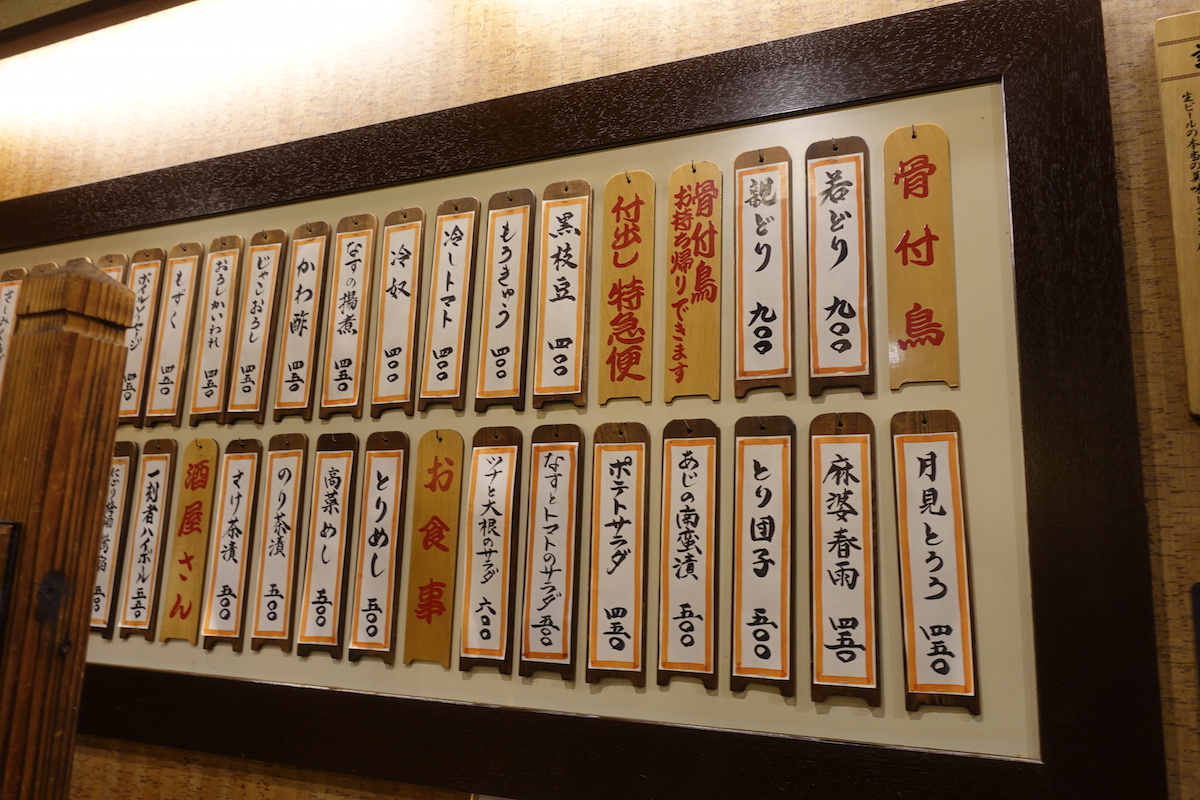 骨付鳥
若どり 九〇〇
親どり 九〇〇
骨付鳥
お持ち帰りできます
付出し 特急便
黒枝豆 四〇〇
もろきゅう 四〇〇
冷しトマト 四〇〇
冷奴 四〇〇
なすの揚煮 四五〇
かわ酢 四五〇
じゃこおろし 四五〇
おろしかいわれ 四五〇
もずく 四五〇
ボイルソーセージ 四五〇
月見とろろ 四五〇
麻婆春雨 四五〇
とり団子 五〇〇
あじの南蛮漬 五〇〇
ポテトサラダ 四五〇
なすとトマトのサラダ 五〇〇
ツナと大根のサラダ 六〇〇
お食事
とりめし 五〇〇
高菜めし 五〇〇
のり茶漬 五〇〇
さけ茶漬 五〇〇
酒屋さん
一刻者ハイボール 五五〇
生ビールの本当の